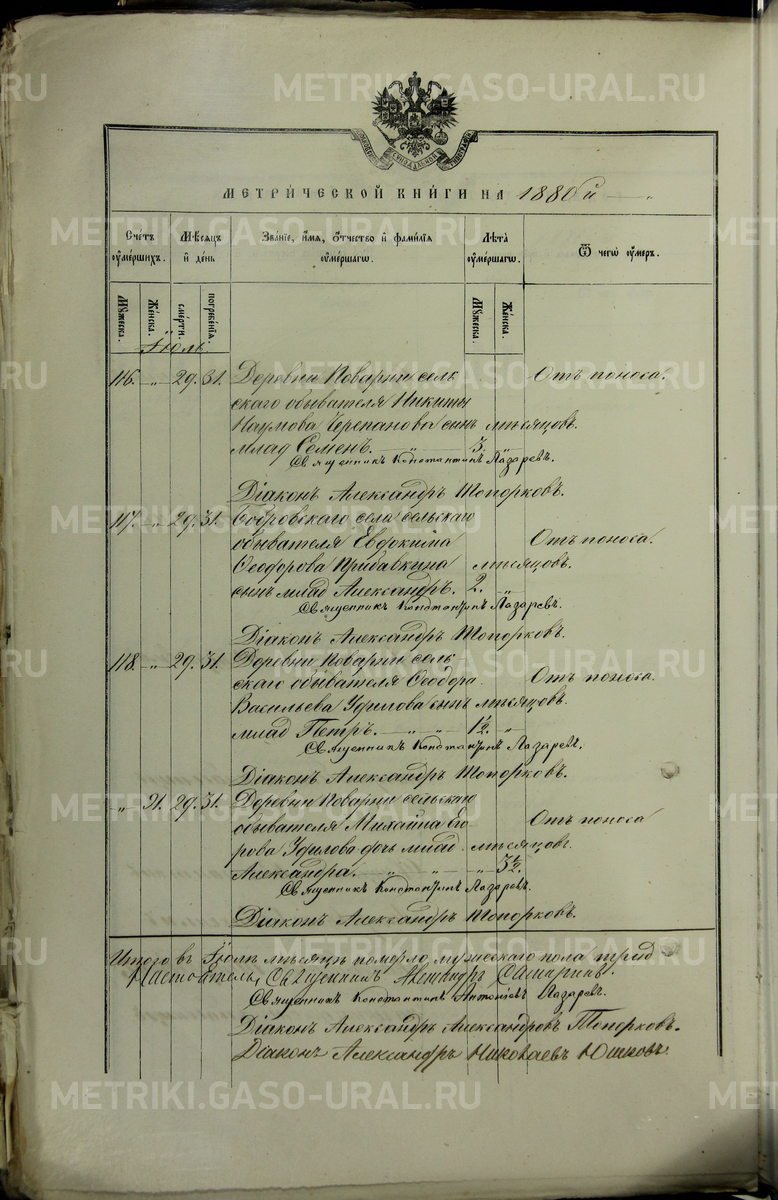 МЕТРИЧЕСКОЙ КНИГИ НА 1880й
Счетъ умершихъ.
Мѣсяцъ и день
Званіе, имя, отчество и фамилія умершаго.
Лѣта умершаго.
Ѿ чегѡ умеръ.
Мужеска.
Женска.
смерти.
погребенія.
Мужеска.
Женска.
Іюль.
116. „ 29. 31. Деревни Поварни сель-
скаго обывателя Никиты
Наумова Черепанова сынъ мѣсяцовъ.
млад Семенъ. „ 3.
Отъ поноса.
Священникъ Константинъ Лазаревъ.
Діаконъ Александръ Топорковъ.
117. „ 29. 31. Бобровскаго села сельскаго
обывателя Евдокима
Ѳеодорова Прибавкина мѣсяцовъ.
сынъ млад Александръ. 2. „
Отъ поноса.
Священникъ Константинъ Лазаревъ.
Діаконъ Александръ Топорковъ.
118. „ 29. 31. Деревни Поварни сель-
скаго обывателя Ѳеодора
Васильева Уфилова сынъ мѣсяцовъ.
млад Петръ. „ „ 1½. „
Отъ поноса.
Священникъ Константинъ Лазаревъ.
Діаконъ Александръ Топорковъ.
„ 91. 29. 31. Деревни Поварни сельскаго
обывателя Михаила Его-
рова Уфилова дочь млад. мѣсяцовъ.
Александра. „ „ „ 3½.
Отъ поноса
Священникъ Константинъ Лазаревъ.
Діаконъ Александръ Топорковъ.
Итого въ Іюлѣ мѣсяцѣ померло, мужескаго пола трид
Настоятель, Священникъ Александръ
Священникъ Константинъ Антоніевъ Лазаревъ.
Діаконъ Александръ Александровъ Топорковъ.
Діаконъ Александръ Николаевъ Юшковъ.
METRIKI.GASO-URAL.RU